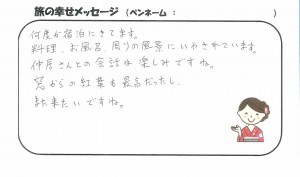 旅の幸せメッセージ (ペンネーム: )
何度か宿泊にきてます。
料理、お風呂、周りの風景にいやされています。
仲居さんとの会話も楽しみですね。
窓からの紅葉も最高だったし、
また来たいですね。